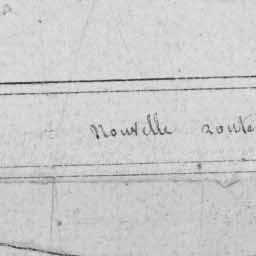 Nouvelle route